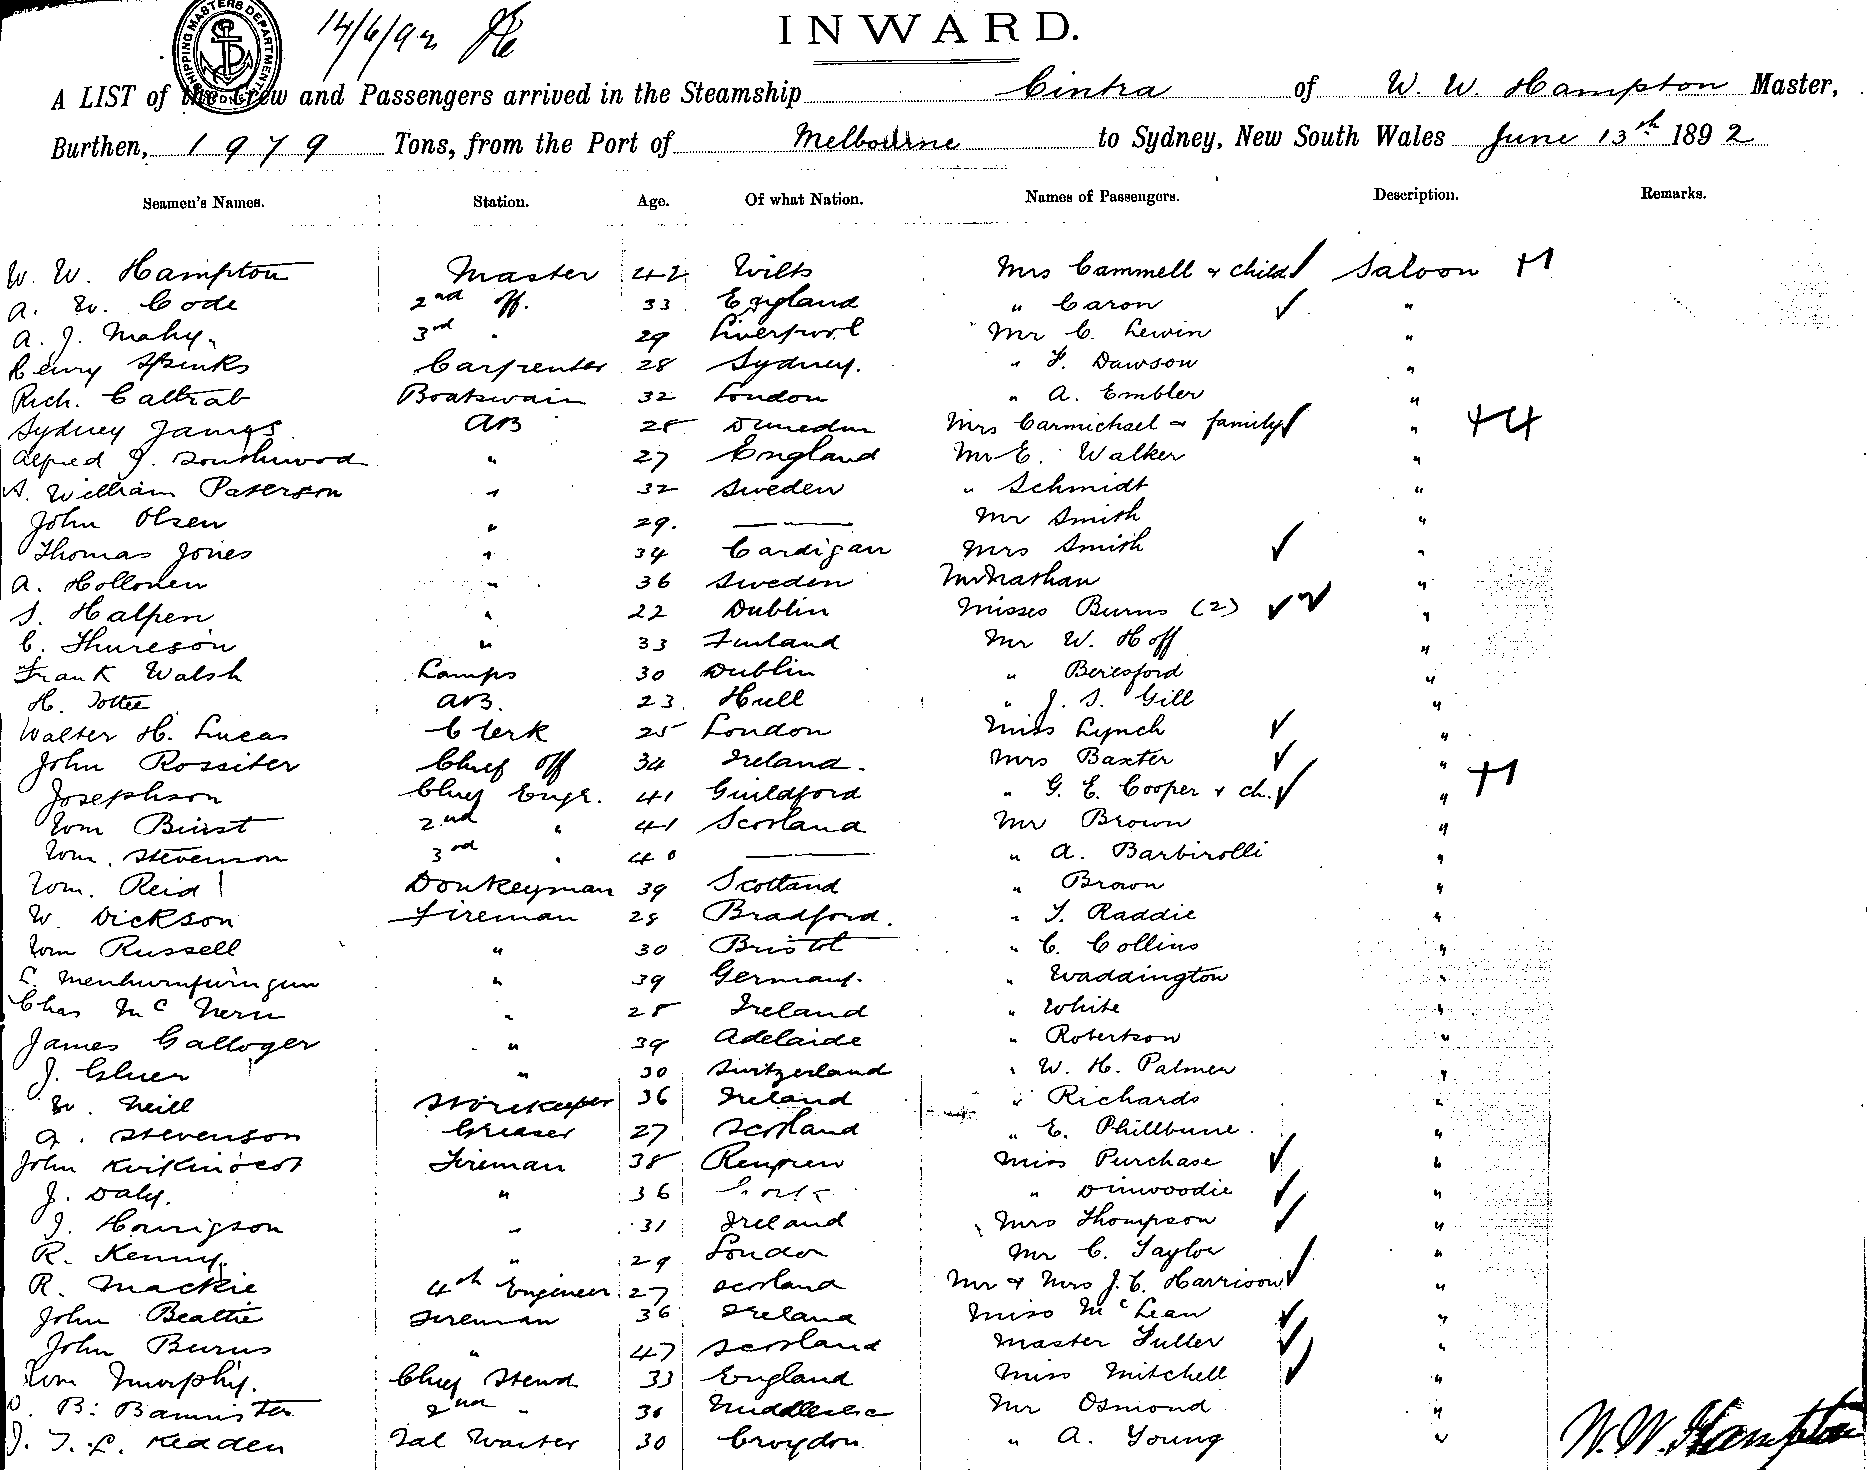 SHIPPING MASTERS DEPARTMENT
14/6/92
INWARD.
A LIST of the Crew and Passengers arrived in the Steamship Cintra of W. W. Hampton Master,
Burthen, 1979 Tons, from the Port of Melbourne to Sydney, New South Wales June 13th 1892
Seamen's Names. Station. Age. Of what Nation. Names of Passengers. Description. Remarks.
W. W. Hampton Master 42 Wilts Mrs Cammell & child Saloon +1
A. W. Code 2nd off. 33 England " Caron "
A. J. Mahy. 3rd " 29 Liverpool Mr C. Lewin "
Henry Spinks Carpenter 28 Sydney. " F. Dawson "
Rich. Cattrab Boatswain 32 London " A. Embler "
Sydney James AB 25 Dunedin Mrs Carmichael & family " +4
Alfred J. Southwood " 27 England Mr E. Walker "
A. William Paterson " 32 Sweden " Schmidt "
John Olsen " 29. — Mr Smith "
Thomas Jones " 34 Cardigan Mrs Smith "
A. Hollonen " 36 Sweden Mr Nathan "
S. Halpen " 22 Dublin Misses Burns (2) "
C. Thureson " 33 Finland Mr W. Hoff "
Frank Walsh Lamps 30 Dublin " Beresford "
H. Tottee AB. 23. Hull " J. S. Gill "
Walter H. Lucas Clerk 25 London Miss Lynch "
John Rossiter Chief Off 34 Ireland. Mrs Baxter "
Josephson Chief Engr. 41 Guildford " G. E. Cooper & ch. " +1
Wm Birst 2nd " 41 Scotland Mr Brown "
Wm. Stevenson 3rd " 40 — " A. Barbirolli "
Wm. Reid Donkeyman 39 Scotland " Brown "
W. Dickson Fireman 28 Bradford. " T. Raddie "
Wm Russell " 30 Bristol " C. Collins "
" 39 Germany. " Waddington "
Chas McNern " 25 Ireland " White "
James Galloger " 39 Adelaide " Robertson "
J. Gluer " 30 Switzerland " W. H. Palmer "
W. Neill Storekeeper 36 Ireland " Richards "
A. Stevenson Greaser 27 Scotland " E. Phillbune. "
John Fireman 38 Renfrew Miss Purchase "
J. Daly. " 36 " Dinwoodie "
J. Hourigson " 31 Ireland Mrs Thompson "
R. Kenny. " 29 London Mr C. Taylor "
R. Mackie 4th Engineer 27 Scotland Mr & Mrs J. C. Harrison "
John Beattie Fireman 36 Ireland Miss McLean "
John Burns " 47 Scotland Master Fuller "
Wm Murphy. Chief Stewd 33 England Miss Mitchell "
B. Bannister 2nd " 36 Middlesex Mr Osmond "
J. T. L. Kedden Sal Waiter 30 Croydon " A. Young "
W. W. Hampton